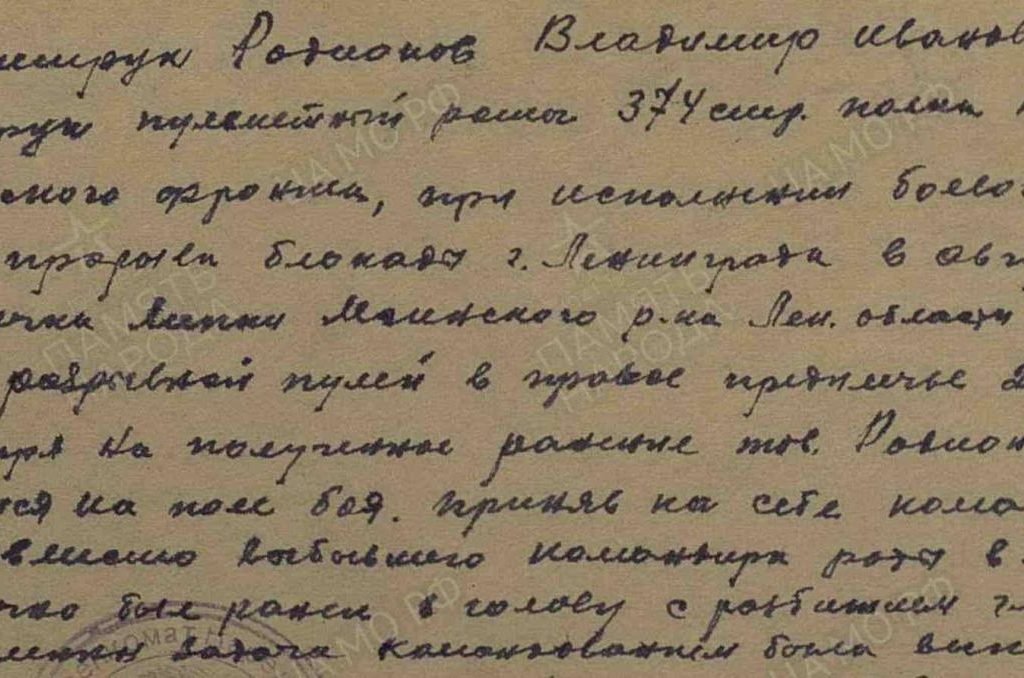 Родионов Владимир Иванов
пулеметной роты 374 стр. полка
ского фронта, при исполнении боево
прорыва блокады г. Ленинграда в авг
Липки Мгинского р-на Лен. области
разрывной пулей в правое предплечье
на полученное ранение тов. Родион
на поле боя. Приняв на себе кома
вместо выбывшего командира роты в
был ранен в голову с разбитием
задача командованием была вып